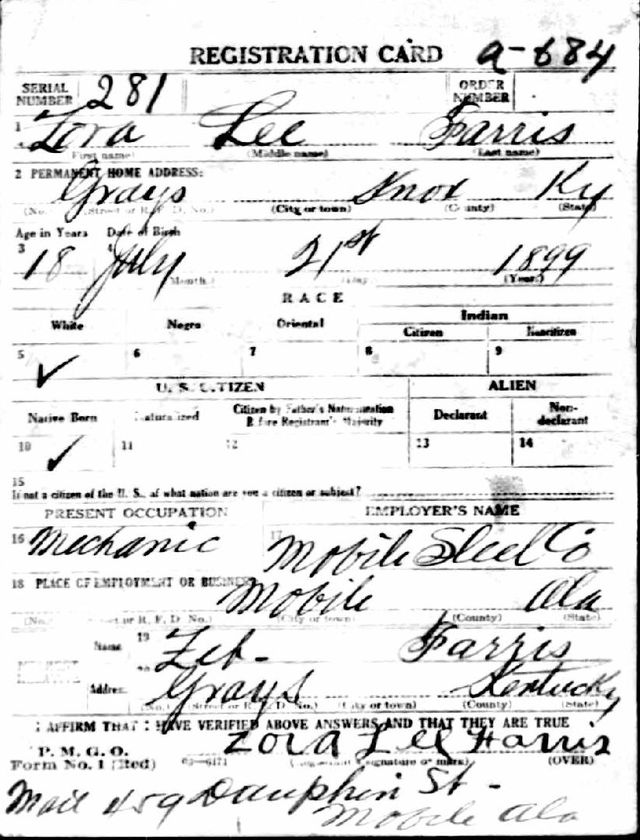 REGISTRATION CARD a-684
SERIAL NUMBER 281 ORDER NUMBER
1 Zora Lee Farris
First name) (Middle name) (Last name)
2 PERMANENT HOME ADDRESS:
Grays Knox Ky
(No.) (Street or R. F. D. No.) (City or town) (County) (State)
Age in Years Date of Birth
3 18 4 July 21st 1899
(Month.) (Day.) (Year.)
RACE
White Negro Oriental Indian
Citizen Noncitizen
5 ✓ 6 7 8 9
U. S. CITIZEN ALIEN
Native Born Naturalized Citizen by Father's Naturalization Before Registrant's Majority Declarant Non-declarant
10 ✓ 11 12 13 14
15
If not a citizen of the U. S., of what nation are you a citizen or subject?
PRESENT OCCUPATION EMPLOYER'S NAME
16 Mechanic 17 Mobile Steel Co
18 PLACE OF EMPLOYMENT OR BUSINESS
Mobile Ala
(No.) (Street or R. F. D. No.) (City or town) (County) (State)
Name 19 Zeb- Farris
NEAREST RELATIVE
Address 20 Grays Kentucky
(No.) (Street or R. F. D. No.) (City or town) (County) (State)
I AFFIRM THAT I HAVE VERIFIED ABOVE ANSWERS AND THAT THEY ARE TRUE
P. M. G. O.
Form No. 1 (Red) 03-6171 Zora Lee Farris
(Registrant's signature or mark) (OVER)
Mail 459 Dauphin St-
Mobile Ala